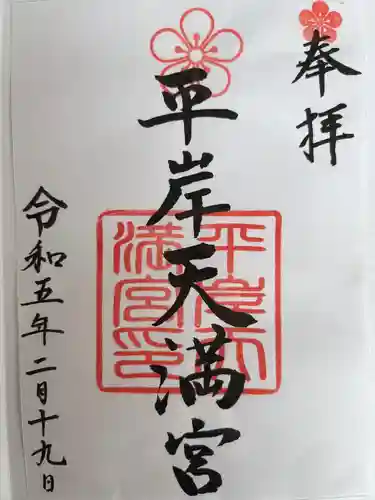 奉拝
平岸天満宮
平岸天満宮印
令和五年二月十九日